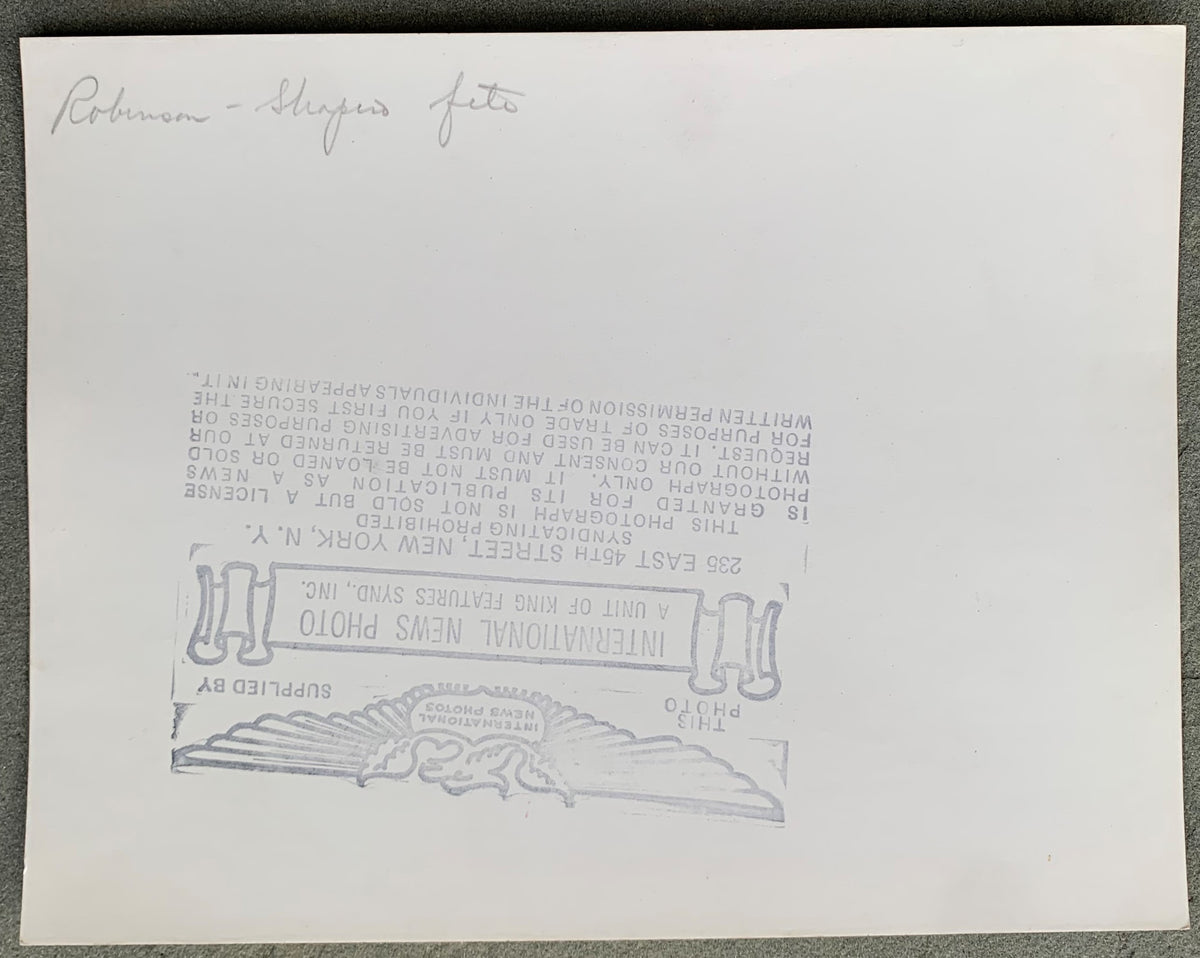 Robinson - Shapiro fete
INTERNATIONAL
NEWS PHOTOS
THIS
PHOTO
SUPPLIED BY
INTERNATIONAL NEWS PHOTO
A UNIT OF KING FEATURES SYND., INC.
235 EAST 45TH STREET, NEW YORK, N.Y.
SYNDICATING PROHIBITED
THIS PHOTOGRAPH IS NOT SOLD BUT A LICENSE
IS GRANTED FOR ITS PUBLICATION AS A NEWS
PHOTOGRAPH ONLY. IT MUST NOT BE LOANED OR SOLD
WITHOUT OUR CONSENT AND MUST BE RETURNED AT OUR
REQUEST. IT CAN BE USED FOR ADVERTISING PURPOSES OR
FOR PURPOSES OF TRADE ONLY IF YOU FIRST SECURE THE
WRITTEN PERMISSION OF THE INDIVIDUALS APPEARING IN IT.